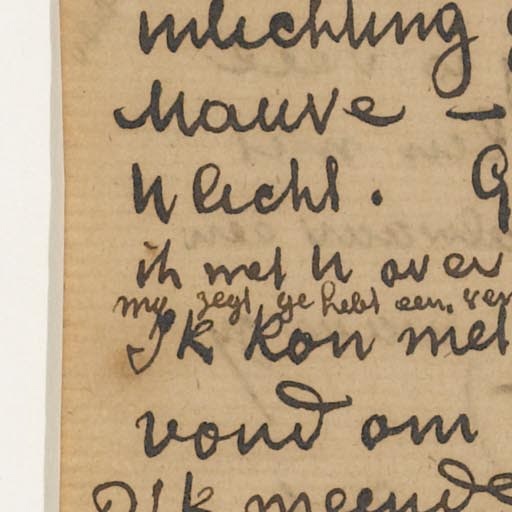 inlichting
Mauve –
U licht. G
ik met U over
my zegt ge hebt een ver
Ik kon met
vond om
Ik meende